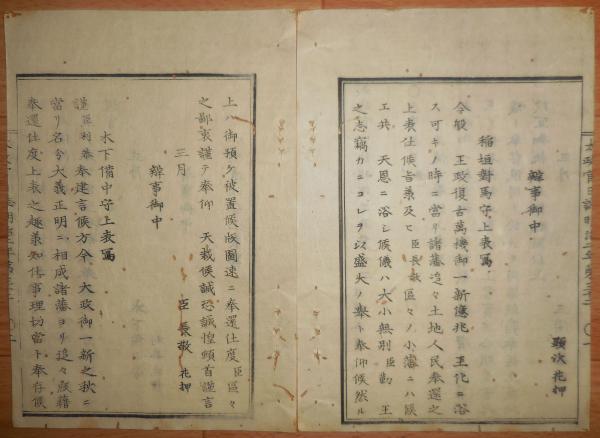 顕次 花押
辯事御中
稲垣對馬守上表寫
今般 王政復古萬機御一新億兆 王化ニ浴
ス可キノ時ニ當リ諸藩追々土地人民奉還之
上表仕候旨兼及ヒ 臣長敬區々ノ小藩ニハ候
エ共 天恩ニ浴シ候儀ハ大小無別 臣勤 王
之志竊カニコレヲ以盛大ノ擧ト奉仰候然ル
上ハ御預ケ被置候版圖速ニ奉還仕度 臣區々
之鄙衷謹テ奉仰 天裁候誠恐誠惶頓首謹言
三月 臣 長敬 花押
辯事御中
木下備中守上表寫
謹 臣利恭奉建言候方今 大政御一新之秋ニ
當リ名分大義正明ニ相成諸藩ヨリ追々版籍
奉還仕度上表之趣兼知仕事理切當ト奉存候